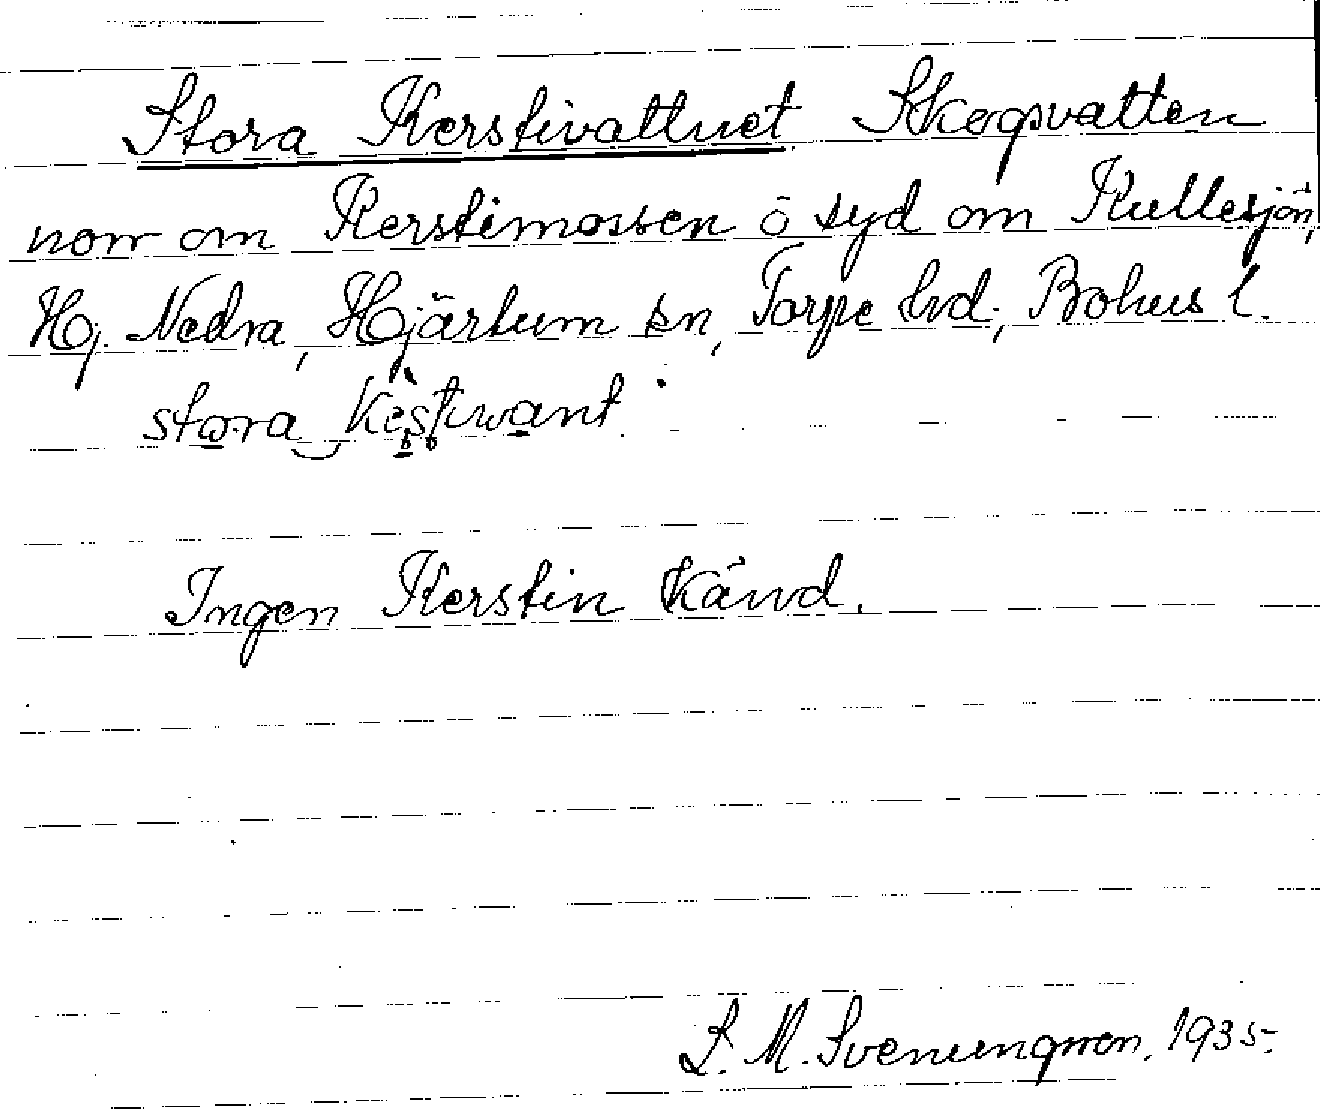 Stora Kerstivattnet Skogsvatten
norr om Kerstimossen ö syd om Kullesjön,
Hg. Nedra, Hjärtum sn, Torpe hd; Bohus l.
stora Kèstiwant
Ingen Kerstin känd.
S. M. Svenungsson. 1935.